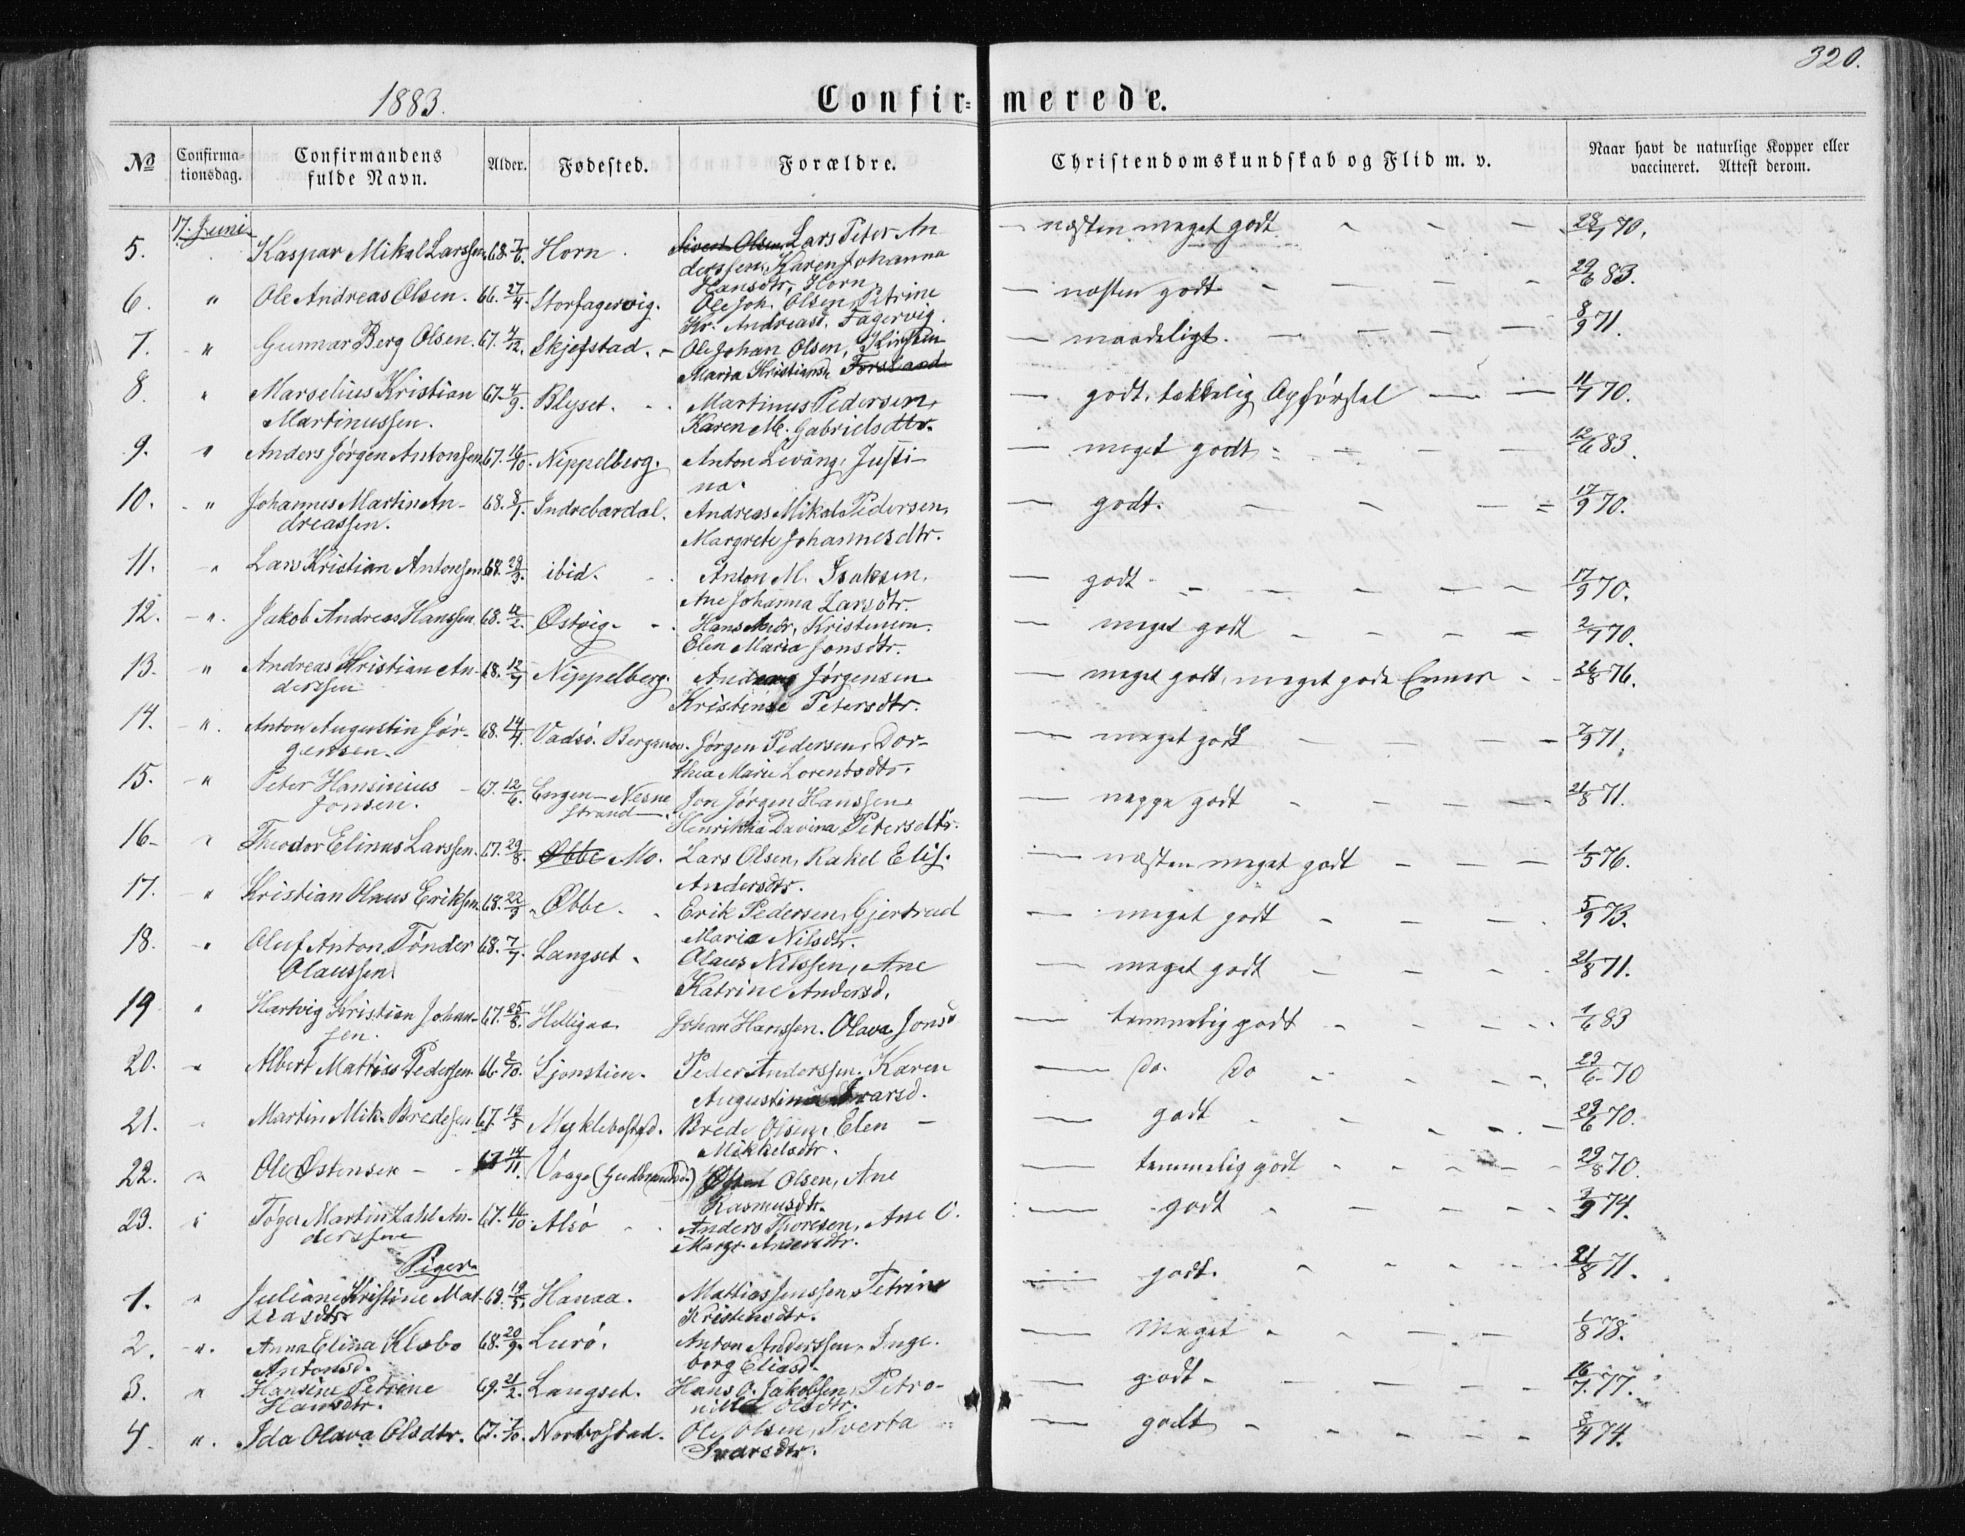 320.
1883.
Confir- merede.
№ Confirma-tionsdag. Confirmandens fulde Navn. Alder. Fødested. Forældre. Christendomskundskab og Flid m. v. Naar havt de naturlige Kopper eller vaccineret. Attest derom.
17. Juni
5. Kaspar Mikal Larssen 68. 7/6. Horn. Sivert Olsen, Lars Peter An- — næsten meget godt - - - 70.
derssen, Karen Johanna
Hansdtr, Horn
6. " Ole Andreas Olsen. 66. 27/4. Storfagervig. Ole Joh. Olsen, Petrine — næsten godt - - - 29/6 83.
Kr. Andreasd. Fagervig.
7. " Gunnar Berg Olsen. 67. 4/12. Skjefstad. - Ole Johan Olsen, Kirsten — maadeligt. - - - 8/9 71.
Maria Kristiansd. Forsland
8. " Marselius Kristian 67. 4/9. Blyset. - - Martinus Pedersen, — godt, Opførsel — — 11/7 70.
Martinussen. Karen M. Gabrielsdtr.
9. " Anders Jørgen Antonsen 67. 16/10. Nippelberg. Anton Levang, Justi- — meget godt - - - 12/6 83.
na.
10. " Johannes Martin An- 68. 8/1. Indrebardal. Andreas Mikal Pedersen, — godt. - - - 17/9 70.
dreassen. Margrete Johannesdtr.
11. " Lars Kristian Antonsen 68. 29/3. ibid. - - Anton M. Isaksen, — godt - - - 17/9 70.
Ane Johanna Larsdtr.
12. " Jakob Andreas Hanssen 68. Østvig. - - Hans Andr. Kristensen. — meget godt - - - 2/7 70.
Elen Maria Jonsdtr.
13. " Andreas Kristian An- 68. 12/7 Nippelberg. Anders Jørgensen — meget godt, meget gode Evner - - 26/8 76.
derssen Kristine Petersdtr.
14. " Anton Augustin Jør- 68. 14/4. Vadsø. Jørgen Pedersen, Dor- — meget godt - - - 71.
gensen. thea Marie Lorentsdtr.
15. " Peter Hansinius - 67. 12/6. Engen - Nesne Jon Jørgen Hanssen, — neppe godt - - - 21/8 71.
Jonsen. strand —. Henrikka Davina Petersdtr.
16- " Theodor Elinus Larssen. 67. 29/8. Øbbe Mo. Lars Olsen, Rakel Elis. — næsten meget godt - - - 1/5 76.
Andersdtr.
17. " Kristian Olaus Eriksen. 68. 22/3. Øbbe. - Erik Pedersen, Gjertrud — meget godt - - - 5/9 73.
Maria Nilsdtr.
18. " Oluf Anton Tønder 68. 7/4. Langset. Olaus Nilssen, Ane — meget godt - - - 21/8 71.
Olaussen. Katrine Andersd.
19 " Hartvig Kristian Johan- 67. 25/8. Helligaa. Johan Hanssen. Olava Jonsd — temmelig godt - - - 1/6 83
sen.
20. " Albert Mattias Pedersen 66. 2/10. Sjonstien. Peder Anderssen. Karen — Do. Do - - - 29/6 70
Augustina Ivarsd.
21. " Martin Mik. Bredesen 67. Myklebostad. Brede Olsen, Elen — — godt - - - 29/6 70.
Mikkelsdtr.
22. " Ole Østensen - - 67 14/11. Vaage (Gudbrandsd.) Olsen, Ane — temmelig godt - - - 29/8 70.
Rasmusdtr.
23. " Tøger Martin Dahl An- 67. 16/10. Alsø - - Anders Thoresen, Ane O. — godt - - - 3/9 74.
derssen Margr. Andersdtr.
Piger.
1. " Juliane Kristine Mat- 68. 19/5. Hanaa. Mattias Jenssen, Petrine — godt. - - - 21/8 71.
tiasdtr. Kristensdtr.
2. " Anna Elina Klæbo 68. 20/9. Lurø. Anton Anderssen, Inge- — Meget - - - 1/8 78.
Antonsd. borg Eliasd.
3. " Hansine Petrine 69. 21/2. Langset. Hans O. Jakobsen, Petro- — godt - - - 16/7 77.
Hansdtr. nille Olsdtr.
4. " Ida Olava Olsdtr. 67. 7/10. Norbostad. Ole Olsen, Sverta — godt - - - 8/7 74.
Ivarsdtr.